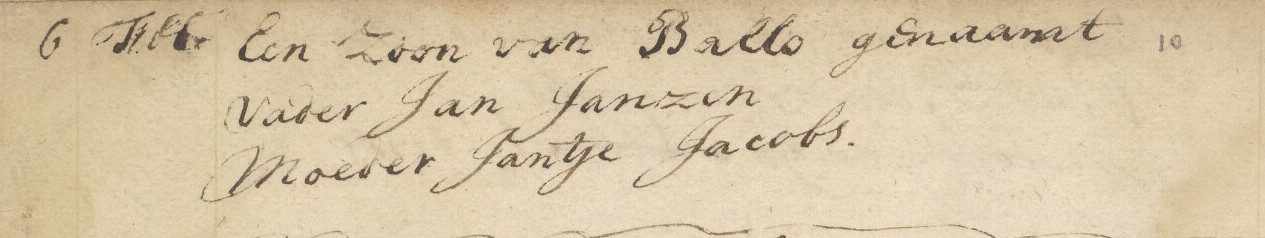 6 Feb: Een Zoon van Ballo genaamt 10
Vader Jan Janzen
Moeder Jantje Jacobs.